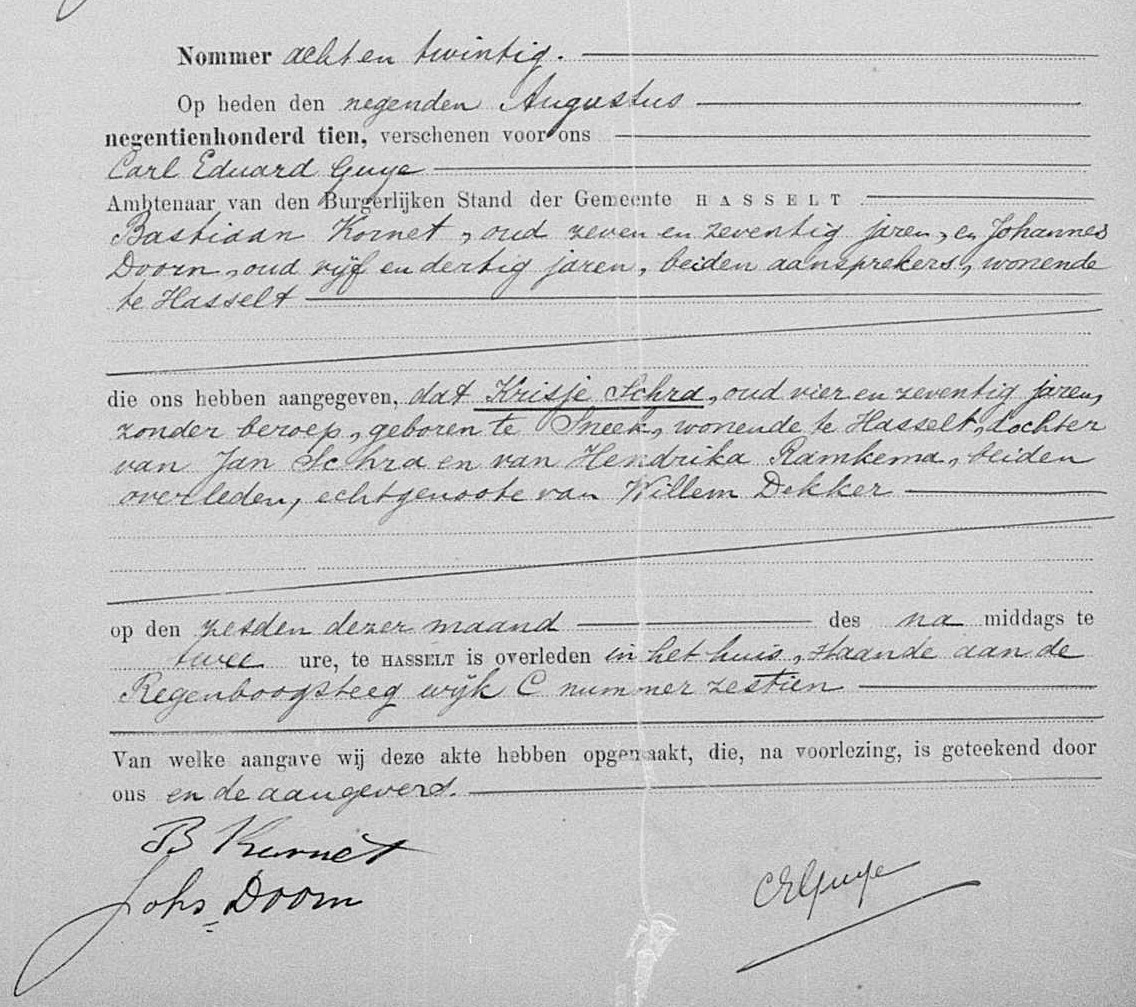 Nommer acht en twintig.
Op heden den negenden Augustus
negentienhonderd tien, verschenen voor ons
Carl Eduard Guye
Ambtenaar van den Burgerlijken Stand der Gemeente HASSELT
Bastiaan Kornet, oud zeven en zeventig jaren, en Johannes
Doorn, oud vijf en dertig jaren, beiden aansprekers, wonende
te Hasselt
die ons hebben aangegeven, dat Krisje Schra, oud vier en zeventig jaren,
zonder beroep, geboren te Sneek, wonende te Hasselt, dochter
van Jan Schra en van Hendrika Ramkema, beiden
overleden, echtgenoote van Willem Dekker
op den zesden dezer maand des na middags te
twee ure, te HASSELT is overleden in het huis, staande aan de
Regenboogsteeg wijk C nummer zestien
Van welke aangave wij deze akte hebben opgemaakt, die, na voorlezing, is geteekend door
ons en de aangevers.
B Kornet
Johs Doorn
CEGuye